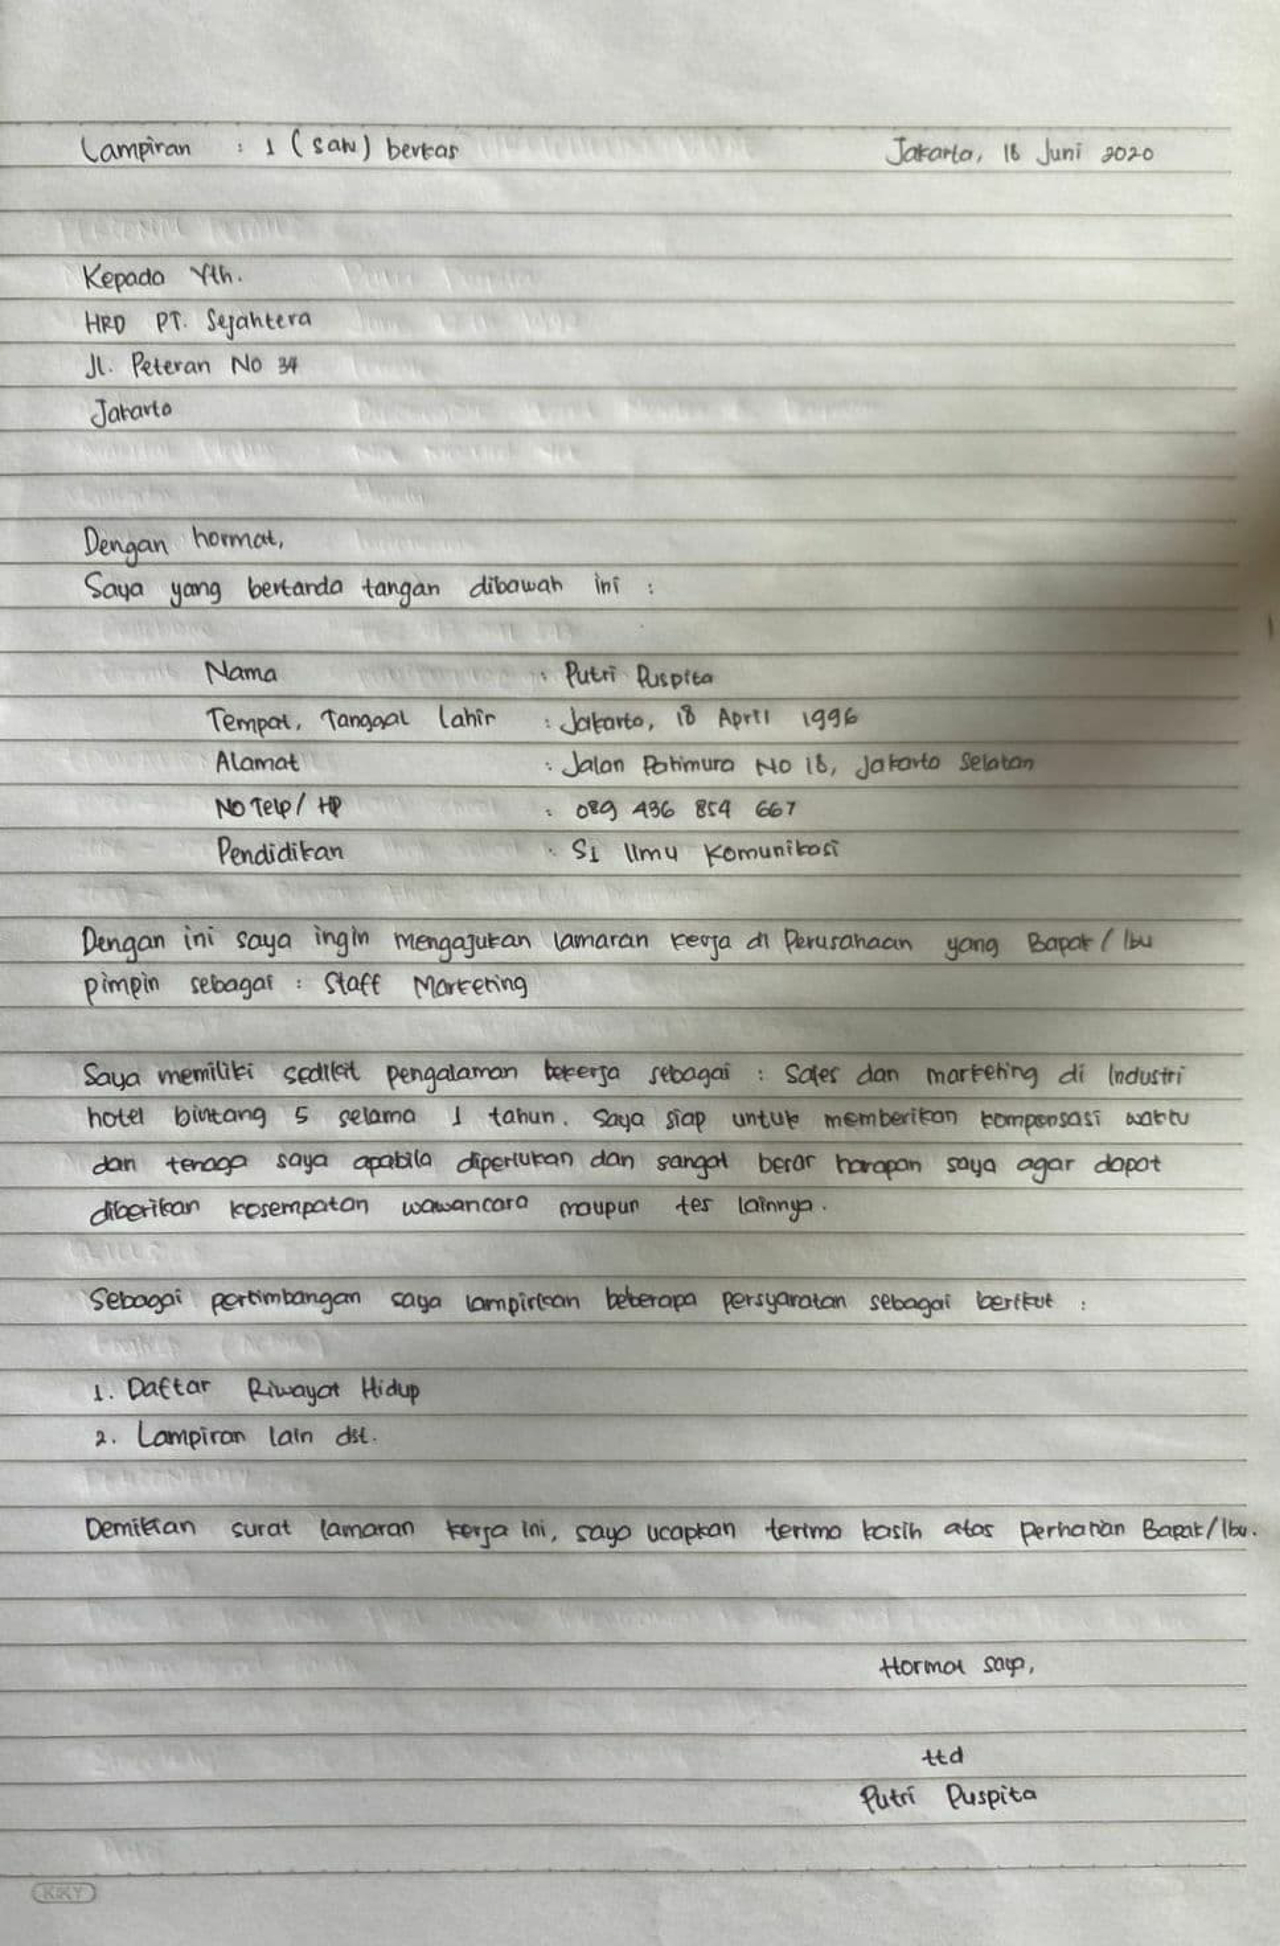 Lampiran : 1 (satu) berkas Jakarta, 18 Juni 2020
Kepada Yth.
HRD PT. Sejahtera
Jl. Peteran No 34
Jakarta
Dengan hormat,
Saya yang bertanda tangan dibawah ini :
Nama : Putri Puspita
Tempat, Tanggal Lahir : Jakarta, 18 April 1996
Alamat : Jalan Patimura No 18, Jakarta Selatan
No Telp/ HP : 089 436 854 667
Pendidikan : S1 Ilmu Komunikasi
Dengan ini saya ingin mengajukan lamaran kerja di Perusahaan yang Bapak / Ibu
pimpin sebagai : Staff Marketing
Saya memiliki sedikit pengalaman bekerja sebagai : Sales dan marketing di Industri
hotel bintang 5 selama 1 tahun. Saya siap untuk memberikan kompensasi waktu
dan tenaga saya apabila diperlukan dan sangat besar harapan saya agar dapat
diberikan kesempatan wawancara maupun tes lainnya.
Sebagai pertimbangan saya lampirkan beberapa persyaratan sebagai berikut :
1. Daftar Riwayat Hidup
2. Lampiran lain dst.
Demikian surat lamaran kerja ini, saya ucapkan terima kasih atas perhatian Bapak/Ibu.
Hormat saya,
ttd
Putri Puspita
KIKY